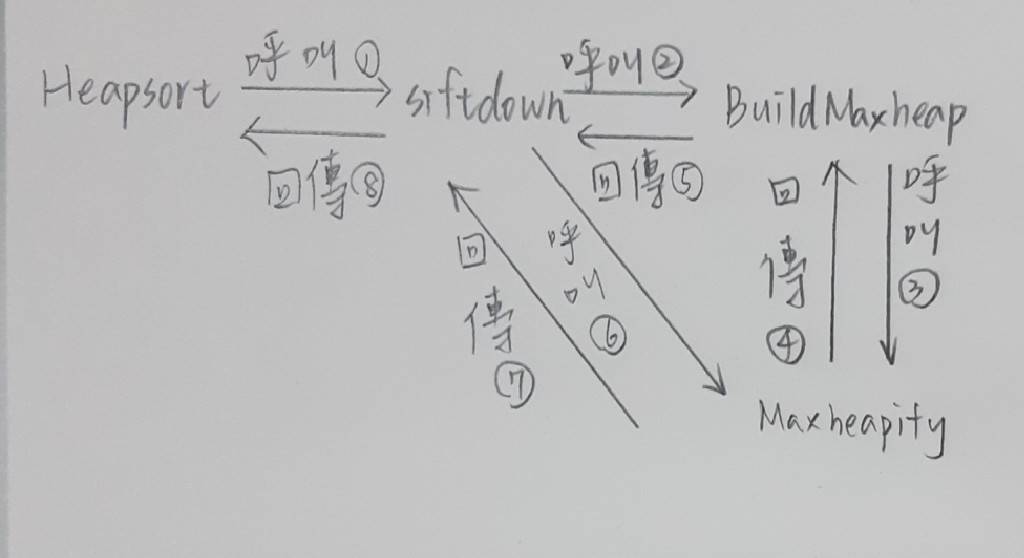 Heapsort 呼叫① siftdown 呼叫② BuildMaxheap
回傳⑧ 回傳⑤
回傳⑦ 呼叫⑥ 回傳④ 呼叫③
Maxheapify